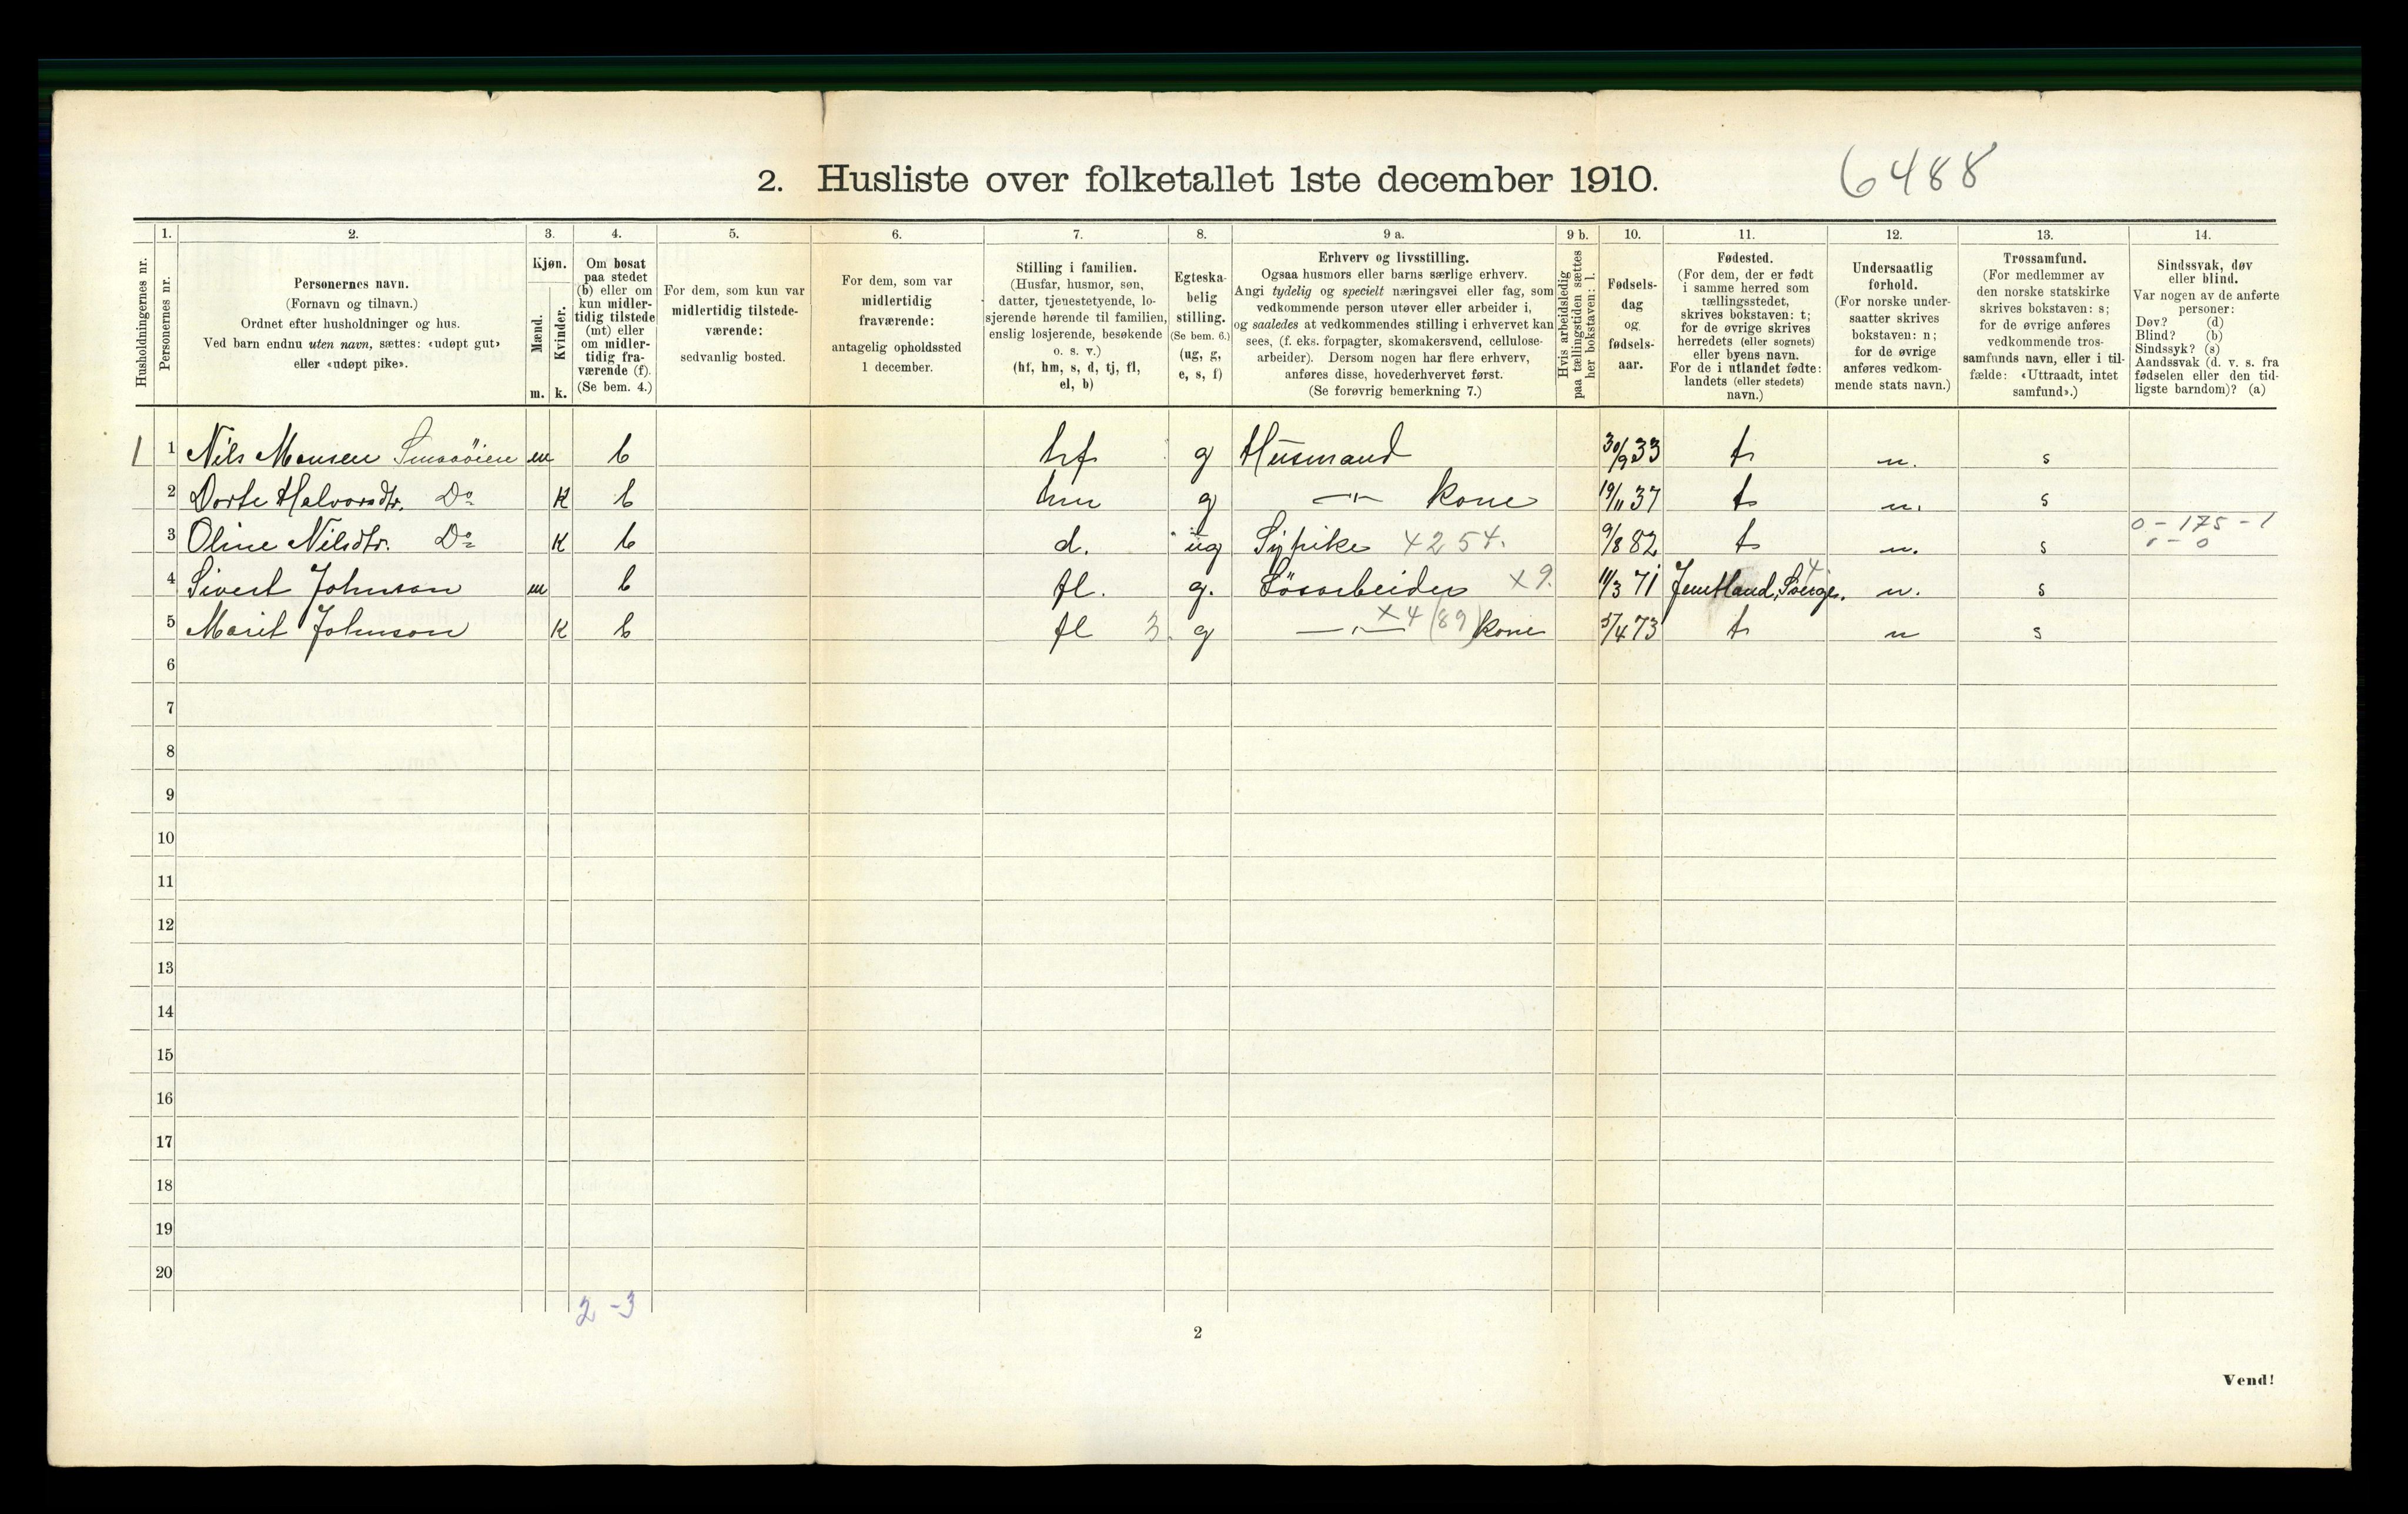 2. Husliste over folketallet 1ste december 1910.
6488
1. 2. 3. 4. 5. 6. 7. 8. 9 a. 9 b. 10. 11. 12. 13. 14.
Husholdningernes nr.
Personernes nr.
Personernes navn.
(Fornavn og tilnavn.)
Ordnet efter husholdninger og hus.
Ved barn endnu uten navn, sættes: «udøpt gut»
eller «udøpt pike».
Kjøn.
Mænd.
Kvinder.
m. k.
Om bosat
paa stedet
(b) eller om
kun midler-
tidig tilstede
(mt) eller
om midler-
tidig fra-
værende (f).
(Se bem. 4.)
For dem, som kun var
midlertidig tilstede-
værende:
sedvanlig bosted.
For dem, som var
midlertidig
fraværende:
antagelig opholdssted
1 december.
Stilling i familien.
(Husfar, husmor, søn,
datter, tjenestetyende, lo-
sjerende hørende til familien,
enslig losjerende, besøkende
o. s. v.)
(hf, hm, s, d, tj, fl,
el, b)
Egteska-
belig
stilling.
(Se bem. 6.)
(ug, g,
e, s, f)
Erhverv og livsstilling.
Ogsaa husmors eller barns særlige erhverv.
Angi tydelig og specielt næringsvei eller fag, som
vedkommende person utøver eller arbeider i,
og saaledes at vedkommendes stilling i erhvervet kan
sees, (f. eks. forpagter, skomakersvend, cellulose-
arbeider). Dersom nogen har flere erhverv,
anføres disse, hovederhvervet først.
(Se forøvrig bemerkning 7.)
Hvis arbeidsledig
paa tællingstiden sættes
her bokstaven: l.
Fødsels-
dag
og
fødsels-
aar.
Fødested.
(For dem, der er født
i samme herred som
tællingsstedet,
skrives bokstaven: t;
for de øvrige skrives
herredets (eller sognets)
eller byens navn.
For de i utlandet fødte:
landets (eller stedets)
navn.)
Undersaatlig
forhold.
(For norske under-
saatter skrives
bokstaven: n;
for de øvrige
anføres vedkom-
mende stats navn.)
Trossamfund.
(For medlemmer av
den norske statskirke
skrives bokstaven: s;
for de øvrige anføres
vedkommende tros-
samfunds navn, eller i til-
fælde: «Uttraadt, intet
samfund».)
Sindssvak, døv
eller blind.
Var nogen av de anførte
personer:
Døv? (d)
Blind? (b)
Sindssyk? (s)
Aandssvak (d. v. s. fra
fødselen eller den tid-
ligste barndom)? (a)
1 1 Nils Monsen Smaaöien m b hf g Husmand 30/9 33 t n. s
2 Dorte Halvorsdtr. Do K b hm g —"— kone 19/11 37 t n. s
0 - 175 - 1
3 Oline Nilsdtr. Do K b d. ug Sypike 4254. 9/8 82 t n. s
4 Sivert Johnson m b fl. g. Lösarbeider x9. 11/3 71 Jemtland, Sverige. 4 n. s
5 Marit Johnson K b fl 3 g —"— x4 (89) kone 5/4 73 t n s
6
7
8
9
10
11
12
13
14
15
16
17
18
19
20
2 - 3
2
Vend!